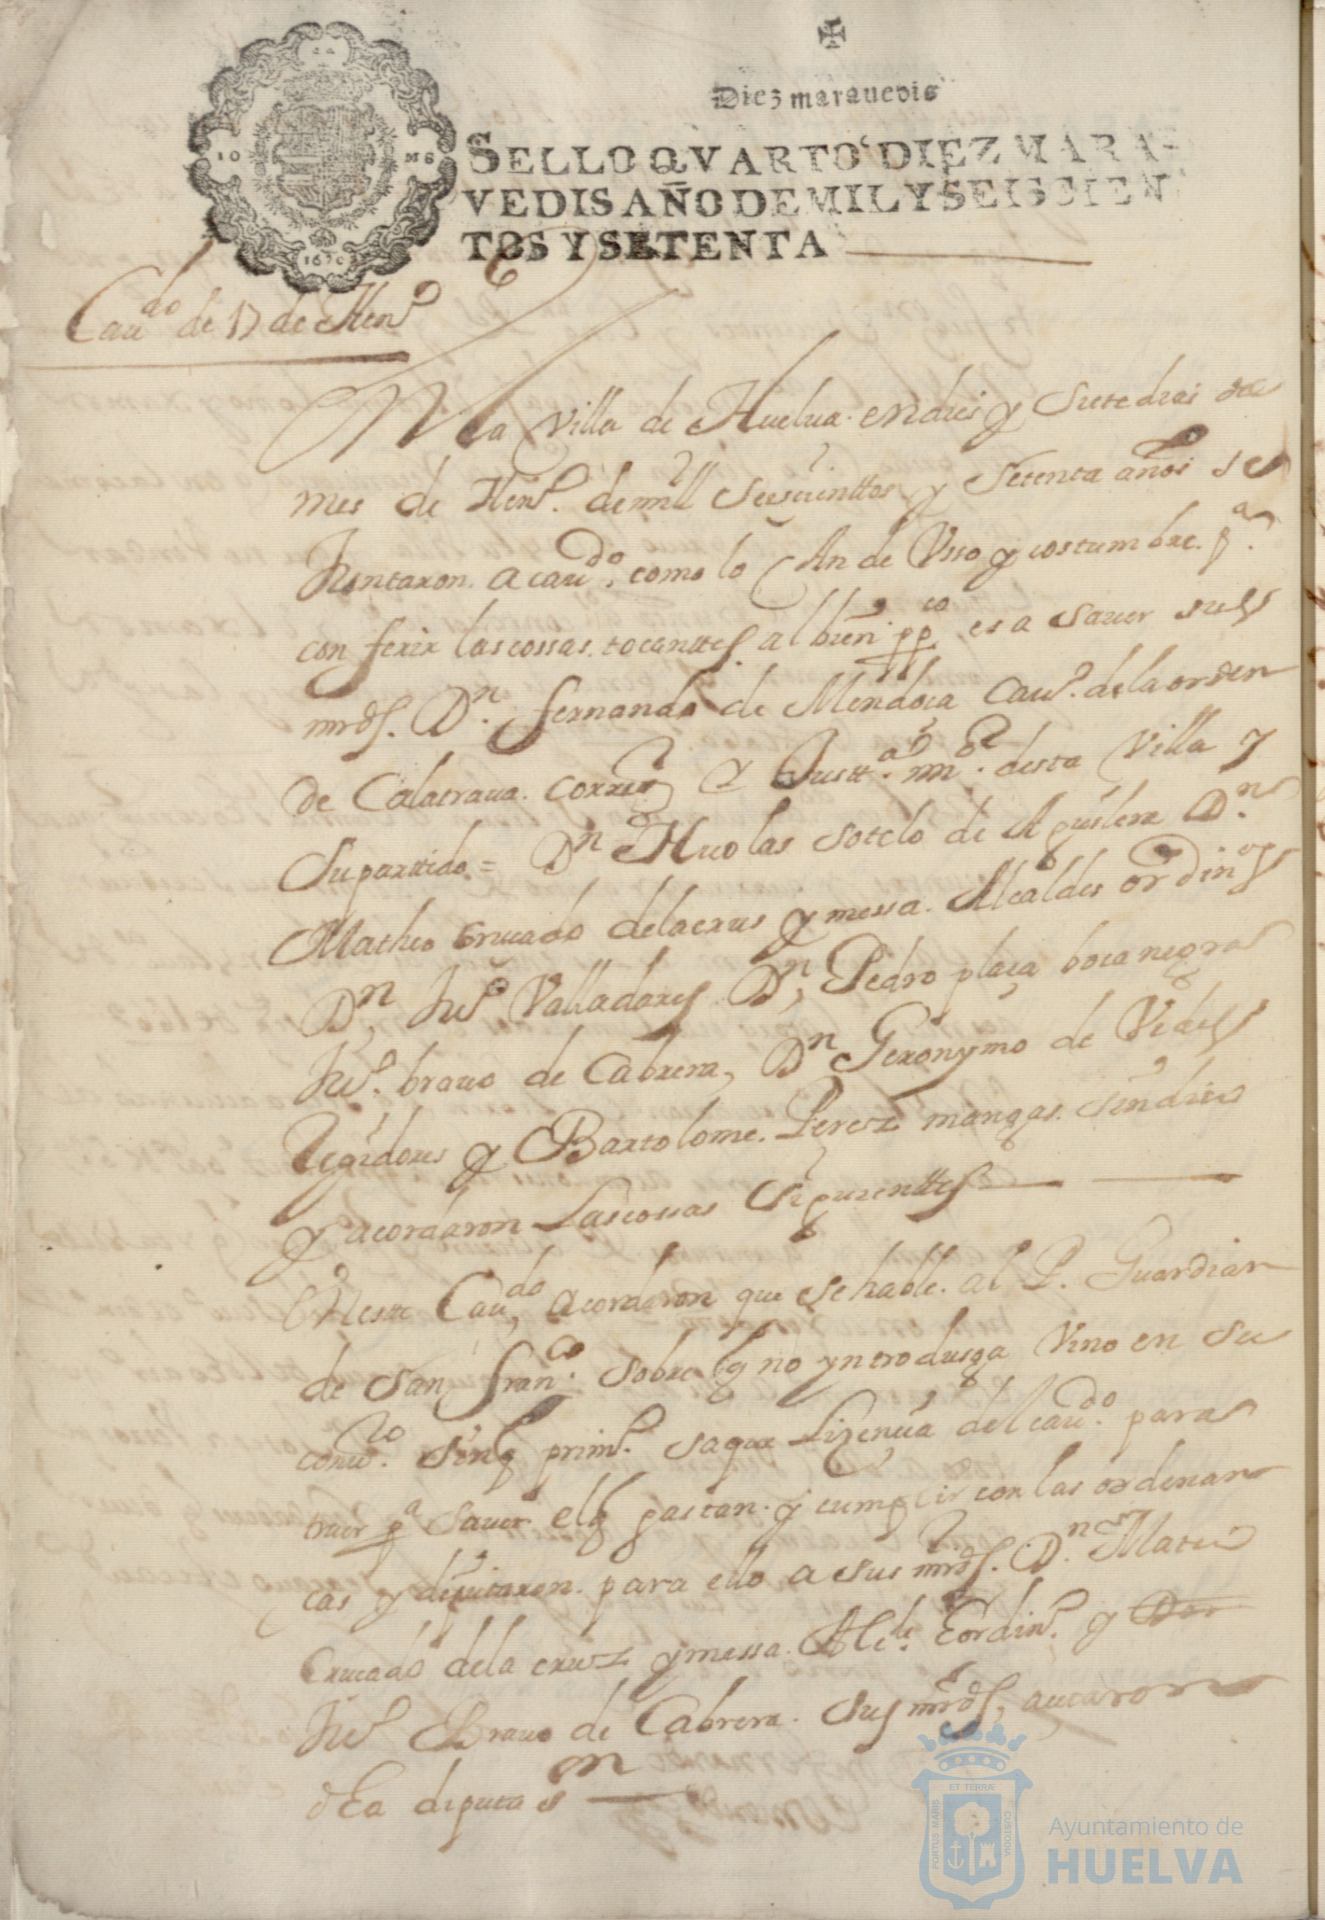 Diez marauedis
SELLO QVARTO, DIEZ MARA-
VEDIS AÑO DE MIL Y SEISCIEN
TOS Y SETENTA
10 MS
1670
Cauᵈᵒ de 17 de Henº
En la Villa de Huelua en dies y Siete dias del
mes de Henº. de mill seiscienttos y Setenta años se
Juntaron a cauᵈᵒ. como lo An de Vsso y costumbre. pª.
conferir las cossas. tocanttes al bien ppᶜᵒ es a sauer sus
mrds. Dⁿ. fernando de Mendoça Cauº. de la orden
de Calatraua. Corregʳ y Justtª. mʳ. desta Villa y
Su parttido = Dⁿ Nicolas Sotelo de Aguilera Dⁿ
Matheo Crucado de la crus y messa. Alcaldes ordinºˢ
Dⁿ, Juº Valladares Dⁿ, Pedro plaça bocanegra
Juº. brauo de Cabrera, Dⁿ Geronymo de Vides
Regidores y Bartolome. Perez mangas. Sindico
y acordaron Las cossas Siguienttes
En este Cauᵈᵒ, acordaron que se hable. al P. Guardian
de San franᶜᵒ. sobre q no yntrodusga Vino en su
conuᵗᵒ. sin q primº. saque Lizençia del cauᵈᵒ. para
traer pª sauer el q gastan. y cumplir con las ordenan
cas y diputaron. para ello a sus mrds. Dⁿ. Mateo
Crucado de la cruz y messa. Alcᵈᵉ. ordinº. y
Juº Brauo de Cabrera. sus mrds, açetaron
dha diputasᵒⁿ
PORTUS MARIS ET TERRAE CUSTODIA
Ayuntamiento de
HUELVA